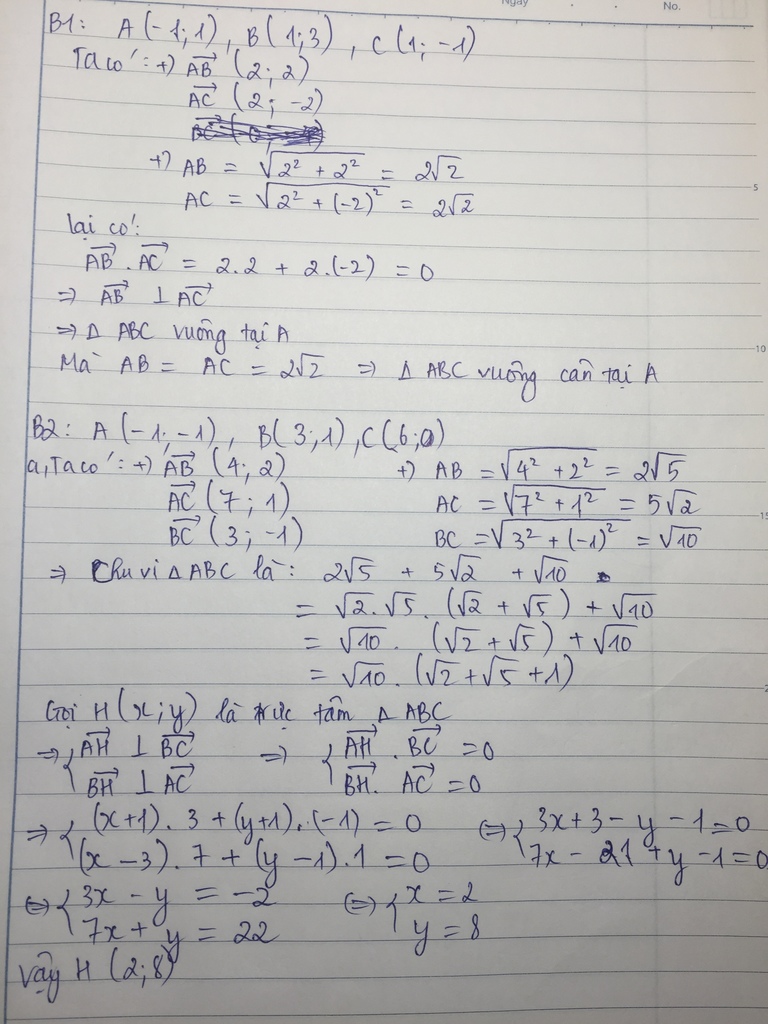 Ngày No.
B1: A(-1;1), B(1;3), C(1;-1)
Ta có: +) $\overrightarrow{AB}$ (2; 2)
$\overrightarrow{AC}$ (2; -2)
+) AB = $\sqrt{2^2 + 2^2}$ = 2√2
AC = $\sqrt{2^2 + (-2)^2}$ = 2√2
5
lại có:
$\overrightarrow{AB}$ . $\overrightarrow{AC}$ = 2.2 + 2.(-2) = 0
=> $\overrightarrow{AB}$ ⊥ $\overrightarrow{AC}$
=> Δ ABC vuông tại A
10
Mà AB = AC = 2√2 => Δ ABC vuông cân tại A
B2: A(-1;-1), B(3;1), C(6;0)
a, Ta có: +) $\overrightarrow{AB}$ (4; 2) +) AB = $\sqrt{4^2 + 2^2}$ = 2√5
$\overrightarrow{AC}$ (7; 1) AC = $\sqrt{7^2 + 1^2}$ = 5√2
15
$\overrightarrow{BC}$ (3; -1) BC = $\sqrt{3^2 + (-1)^2}$ = √10
=> Chu vi Δ ABC là: 2√5 + 5√2 + √10
= √2.√5.(√2 + √5) + √10
= √10.(√2 + √5) + √10
= √10.(√2 + √5 + 1)
Gọi H(x;y) là trực tâm Δ ABC
=> { $\overrightarrow{AH}$ ⊥ $\overrightarrow{BC}$ => { $\overrightarrow{AH}$ . $\overrightarrow{BC}$ = 0
$\overrightarrow{BH}$ ⊥ $\overrightarrow{AC}$ $\overrightarrow{BH}$ . $\overrightarrow{AC}$ = 0
=> { (x+1).3 + (y+1).(-1) = 0 <=> { 3x+3-y-1=0
(x-3).7 + (y-1).1 = 0 7x-21+y-1=0
<=> { 3x - y = -2 <=> { x = 2
7x + y = 22 y = 8
Vậy H (2;8)